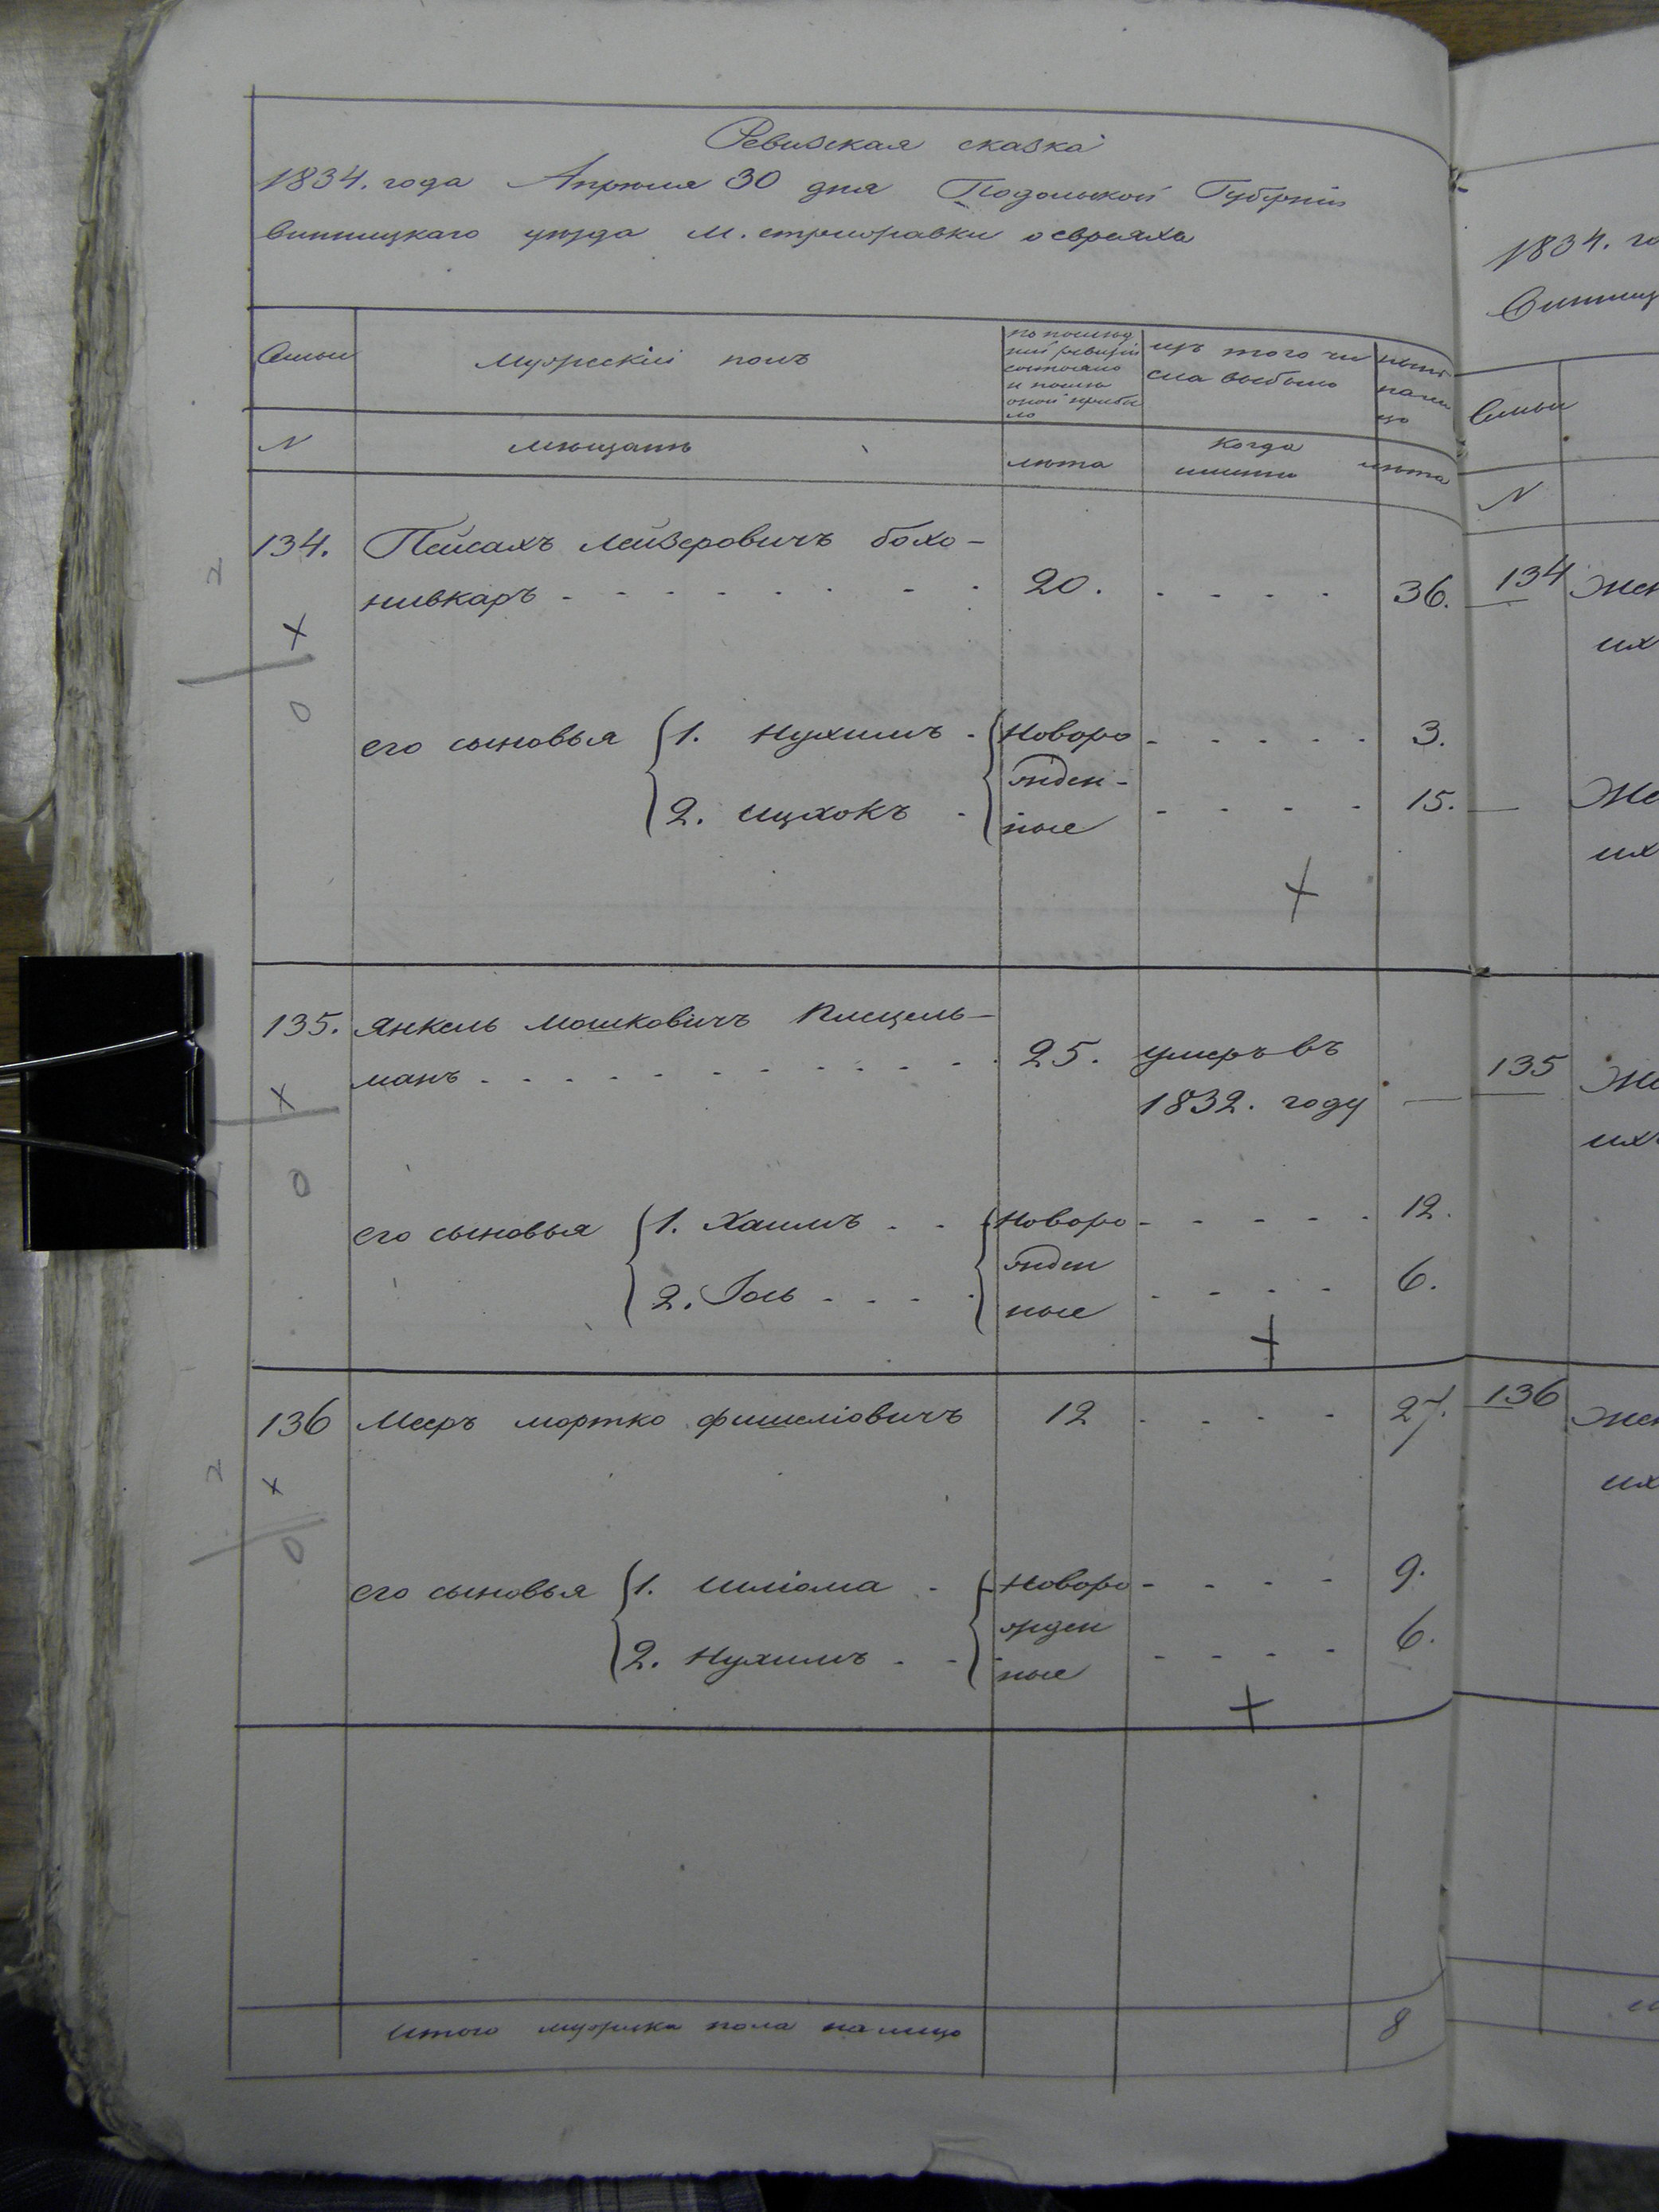 Ревизская сказка
1834. года Апреля 30 дня Подольской Губерніи
винницкаго уезда м. стрижавки о евреяхъ
Семьи
Мужескій полъ
по послед
ней ревизіи
состояло
и после
оной прибы
ло
изъ того чи
сла выбыло
ныне
нали
цо
N
мещане
лета
когда
именно
лета
134.
Пейсахъ Лейзеровичъ бохо-
нивкаръ
20.
36.
его сыновья
1. Нухимъ
Новоро
3.
жден-
2. ицхокъ
ные
15.
135.
Янкель Мошковичъ Клецель-
манъ
25.
умеръ въ
1832. году
—
его сыновья
1. Хаимъ
Новоро
12.
жден
2. Іось
ные
6.
136
Мееръ мортко фишеліовичъ
12
27.
его сыновья
1. Шліома
Новоро
9.
жден
2. Нухимъ
ные
6.
итого мужеска пола налицо
8
1834. го
Винниц
Семьи
N
134
Жен
их
Же
их
135
Же
ихъ
136
Жен
их